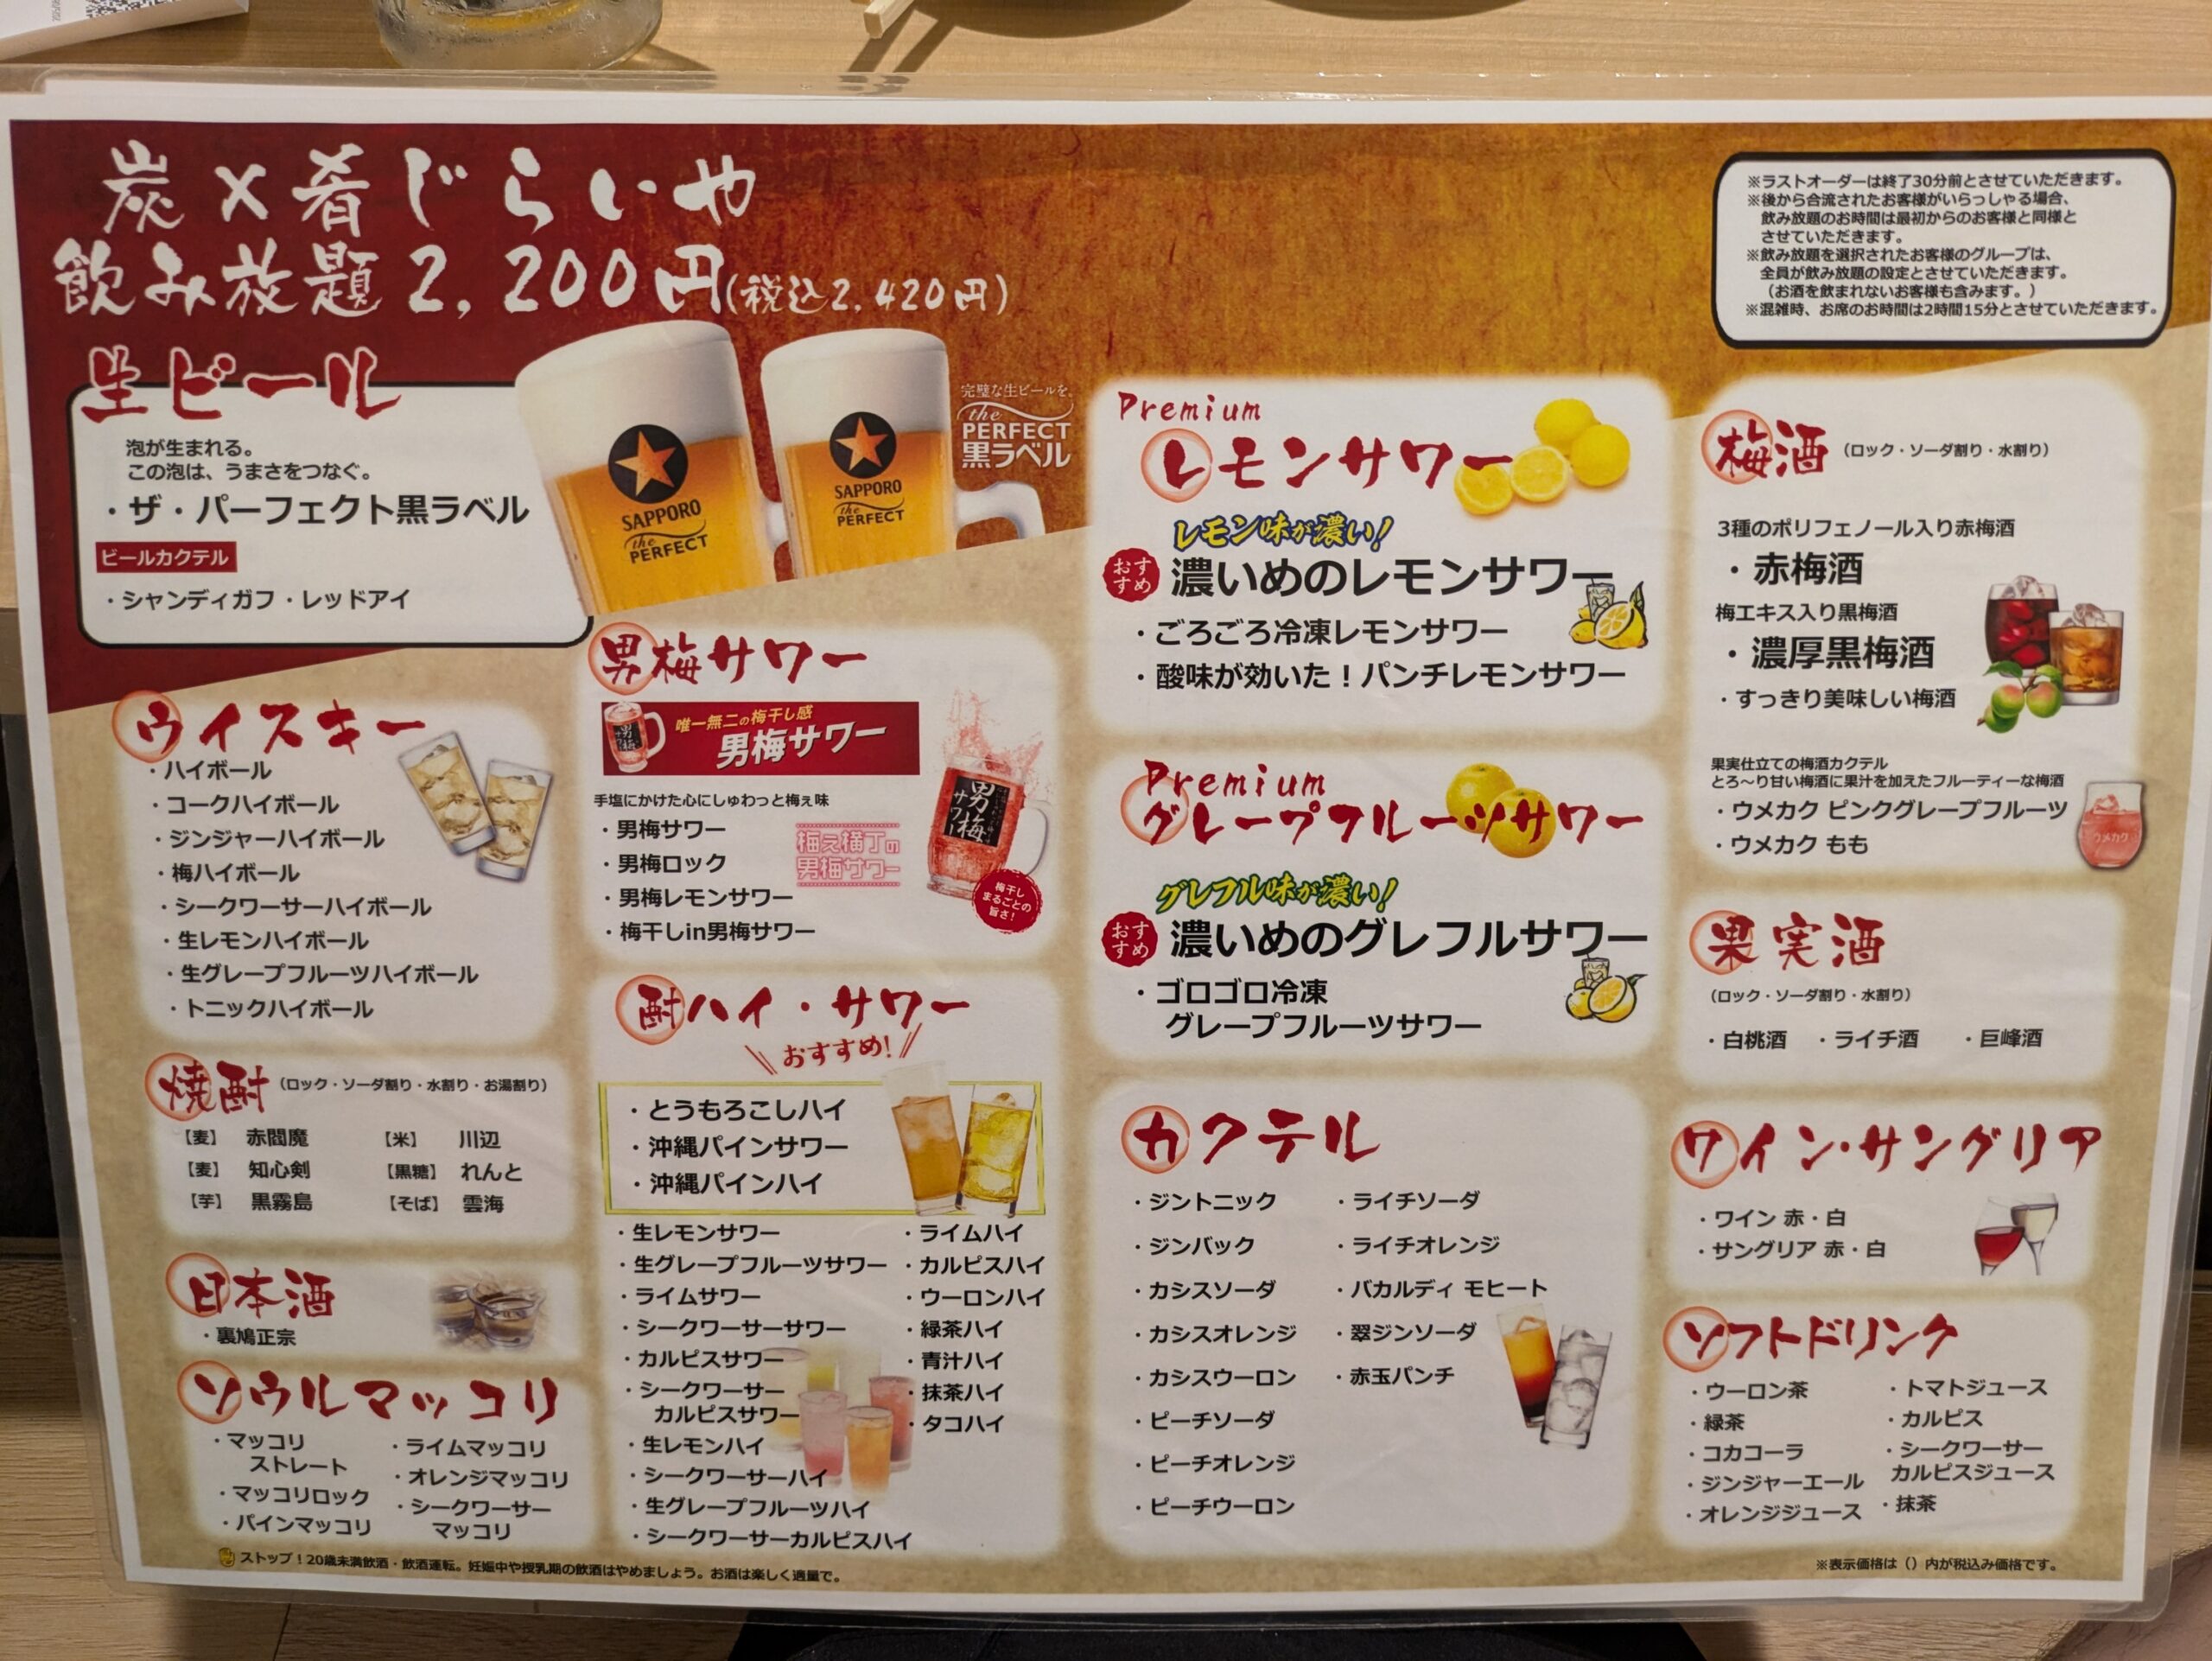 炭×肴じらいや
飲み放題2,200円(税込2,420円)
※ラストオーダーは終了30分前とさせていただきます。
※後から合流されたお客様がいらっしゃる場合、
飲み放題のお時間は最初からのお客様と同様と
させていただきます。
※飲み放題を選択されたお客様のグループは、
全員が飲み放題の設定とさせていただきます。
(お酒を飲まれないお客様も含みます。)
※混雑時、お席のお時間は2時間15分とさせていただきます。
生ビール
泡が生まれる。
この泡は、うまさをつなぐ。
・ザ・パーフェクト黒ラベル
ビールカクテル
・シャンディガフ・レッドアイ
SAPPORO
the
PERFECT
SAPPORO
the
PERFECT
完璧な生ビールを。
the
PERFECT
黒ラベル
ウイスキー
・ハイボール
・コークハイボール
・ジンジャーハイボール
・梅ハイボール
・シークワーサーハイボール
・生レモンハイボール
・生グレープフルーツハイボール
・トニックハイボール
焼酎(ロック・ソーダ割り・水割り・お湯割り)
【麦】 赤閻魔 【米】 川辺
【麦】 知心剣 【黒糖】 れんと
【芋】 黒霧島 【そば】 雲海
日本酒
・裏鳩正宗
ソウルマッコリ
・マッコリ
ストレート
・マッコリロック
・パインマッコリ
・ライムマッコリ
・オレンジマッコリ
・シークワーサー
マッコリ
男梅サワー
唯一無二の梅干し感
男梅サワー
手塩にかけた心にしゅわっと梅ぇ味
・男梅サワー
・男梅ロック
・男梅レモンサワー
・梅干しin男梅サワー
梅え横丁の
男梅サワー
男梅
サワー
梅干し
まるごとの
旨さ!
酎ハイ・サワー
おすすめ!
・とうもろこしハイ
・沖縄パインサワー
・沖縄パインハイ
・生レモンサワー
・生グレープフルーツサワー
・ライムサワー
・シークワーサーサワー
・カルピスサワー
・シークワーサー
カルピスサワー
・生レモンハイ
・シークワーサーハイ
・生グレープフルーツハイ
・シークワーサーカルピスハイ
・ライムハイ
・カルピスハイ
・ウーロンハイ
・緑茶ハイ
・青汁ハイ
・抹茶ハイ
・タコハイ
Premium
レモンサワー
レモン味が濃い!
おすすめ 濃いめのレモンサワー
・ごろごろ冷凍レモンサワー
・酸味が効いた!パンチレモンサワー
Premium
グレープフルーツサワー
グレフル味が濃い!
おすすめ 濃いめのグレフルサワー
・ゴロゴロ冷凍
グレープフルーツサワー
カクテル
・ジントニック
・ジンバック
・カシスソーダ
・カシスオレンジ
・カシスウーロン
・ピーチソーダ
・ピーチオレンジ
・ピーチウーロン
・ライチソーダ
・ライチオレンジ
・バカルディ モヒート
・翠ジンソーダ
・赤玉パンチ
梅酒(ロック・ソーダ割り・水割り)
3種のポリフェノール入り赤梅酒
・赤梅酒
梅エキス入り黒梅酒
・濃厚黒梅酒
・すっきり美味しい梅酒
果実仕立ての梅酒カクテル
とろ～り甘い梅酒に果汁を加えたフルーティーな梅酒
・ウメカク ピンクグレープフルーツ
・ウメカク もも
ウメカク
果実酒
(ロック・ソーダ割り・水割り)
・白桃酒 ・ライチ酒 ・巨峰酒
ワイン・サングリア
・ワイン 赤・白
・サングリア 赤・白
ソフトドリンク
・ウーロン茶
・緑茶
・コカコーラ
・ジンジャーエール
・オレンジジュース
・トマトジュース
・カルピス
・シークワーサー
カルピスジュース
・抹茶
ストップ!20歳未満飲酒・飲酒運転。妊娠中や授乳期の飲酒はやめましょう。お酒は楽しく適量で。
※表示価格は()内が税込み価格です。